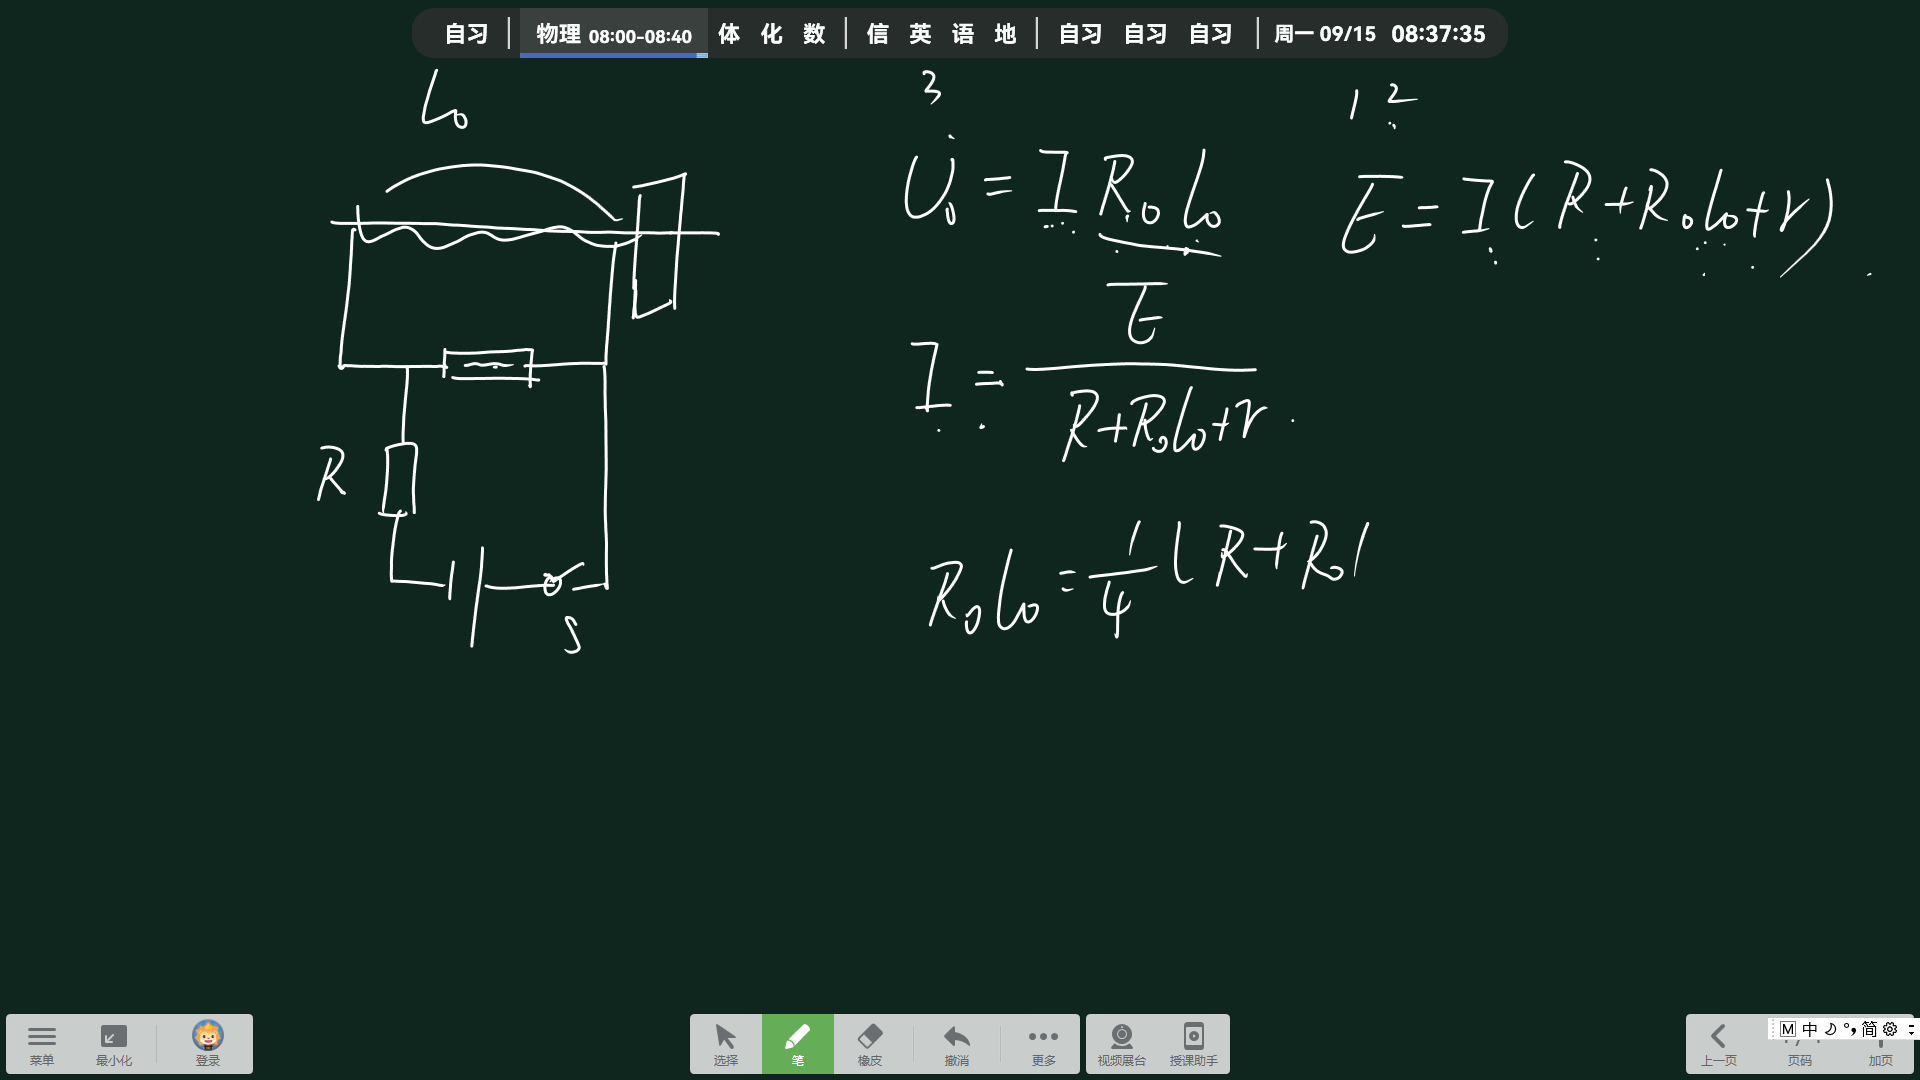 自习 | 物理 08:00-08:40 体 化 数 | 信 英 语 地 | 自习 自习 自习 | 周一 09/15 08:37:35
L₀
R
S
3
U₀ = I R₀ L₀
1 2
E = I ( R + R₀ L₀ + r )
I = E / (R + R₀ L₀ + r)
R₀ L₀ = 1/4 ( R + R₀ l
菜单 最小化 登录
选择 笔 橡皮 撤消 更多
视频展台 授课助手
M 中 简
上一页 页码 加页